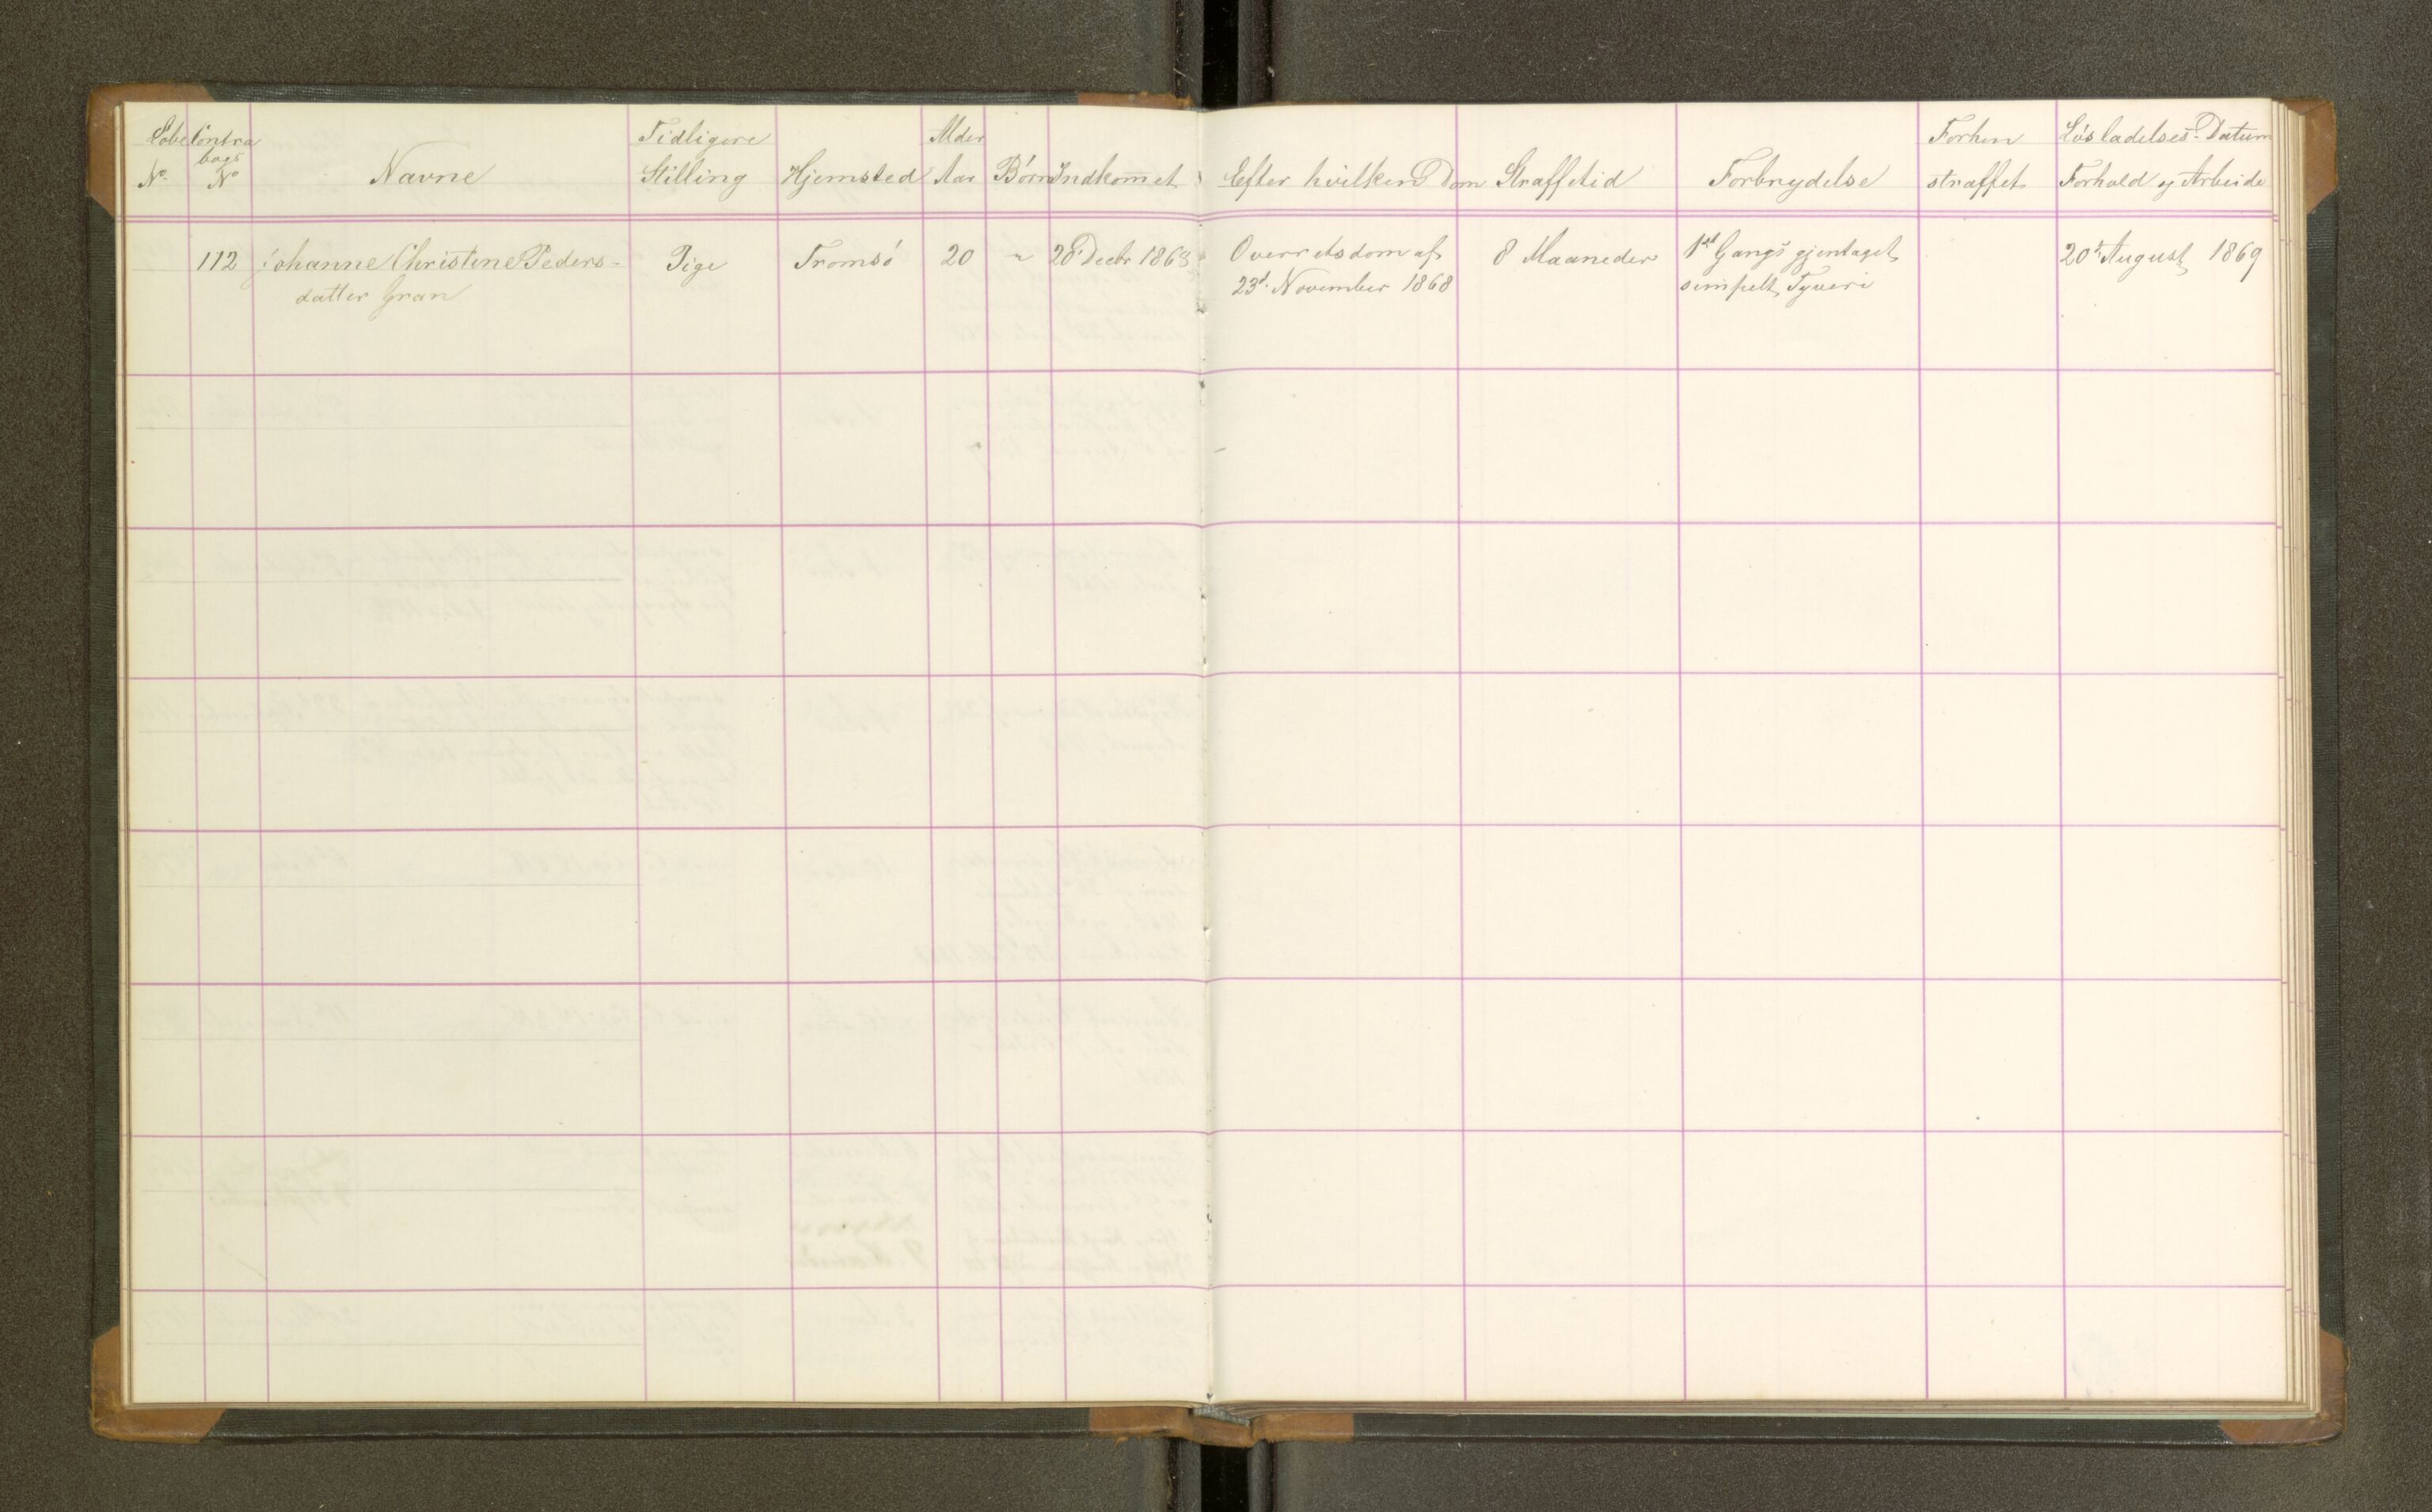 Løbe No.
Contra bogs No
Navne
Tidligere Stilling
Hjemsted
Alder Aar
Børn
Indkommet
Efter hvilken Dom
Straffetid
Forbrydelse
Forhen straffet
Løsladelses-Datum
Forhold og Arbeide
112 Johanne Christine Peders- Pige Tromsö 20 " 28 Decbr 1868 Overretsdom af 8 Maaneder 1st Gangs gjentaget 20t August 1869
datter Gran 23d. November 1868 simpelt Tyveri